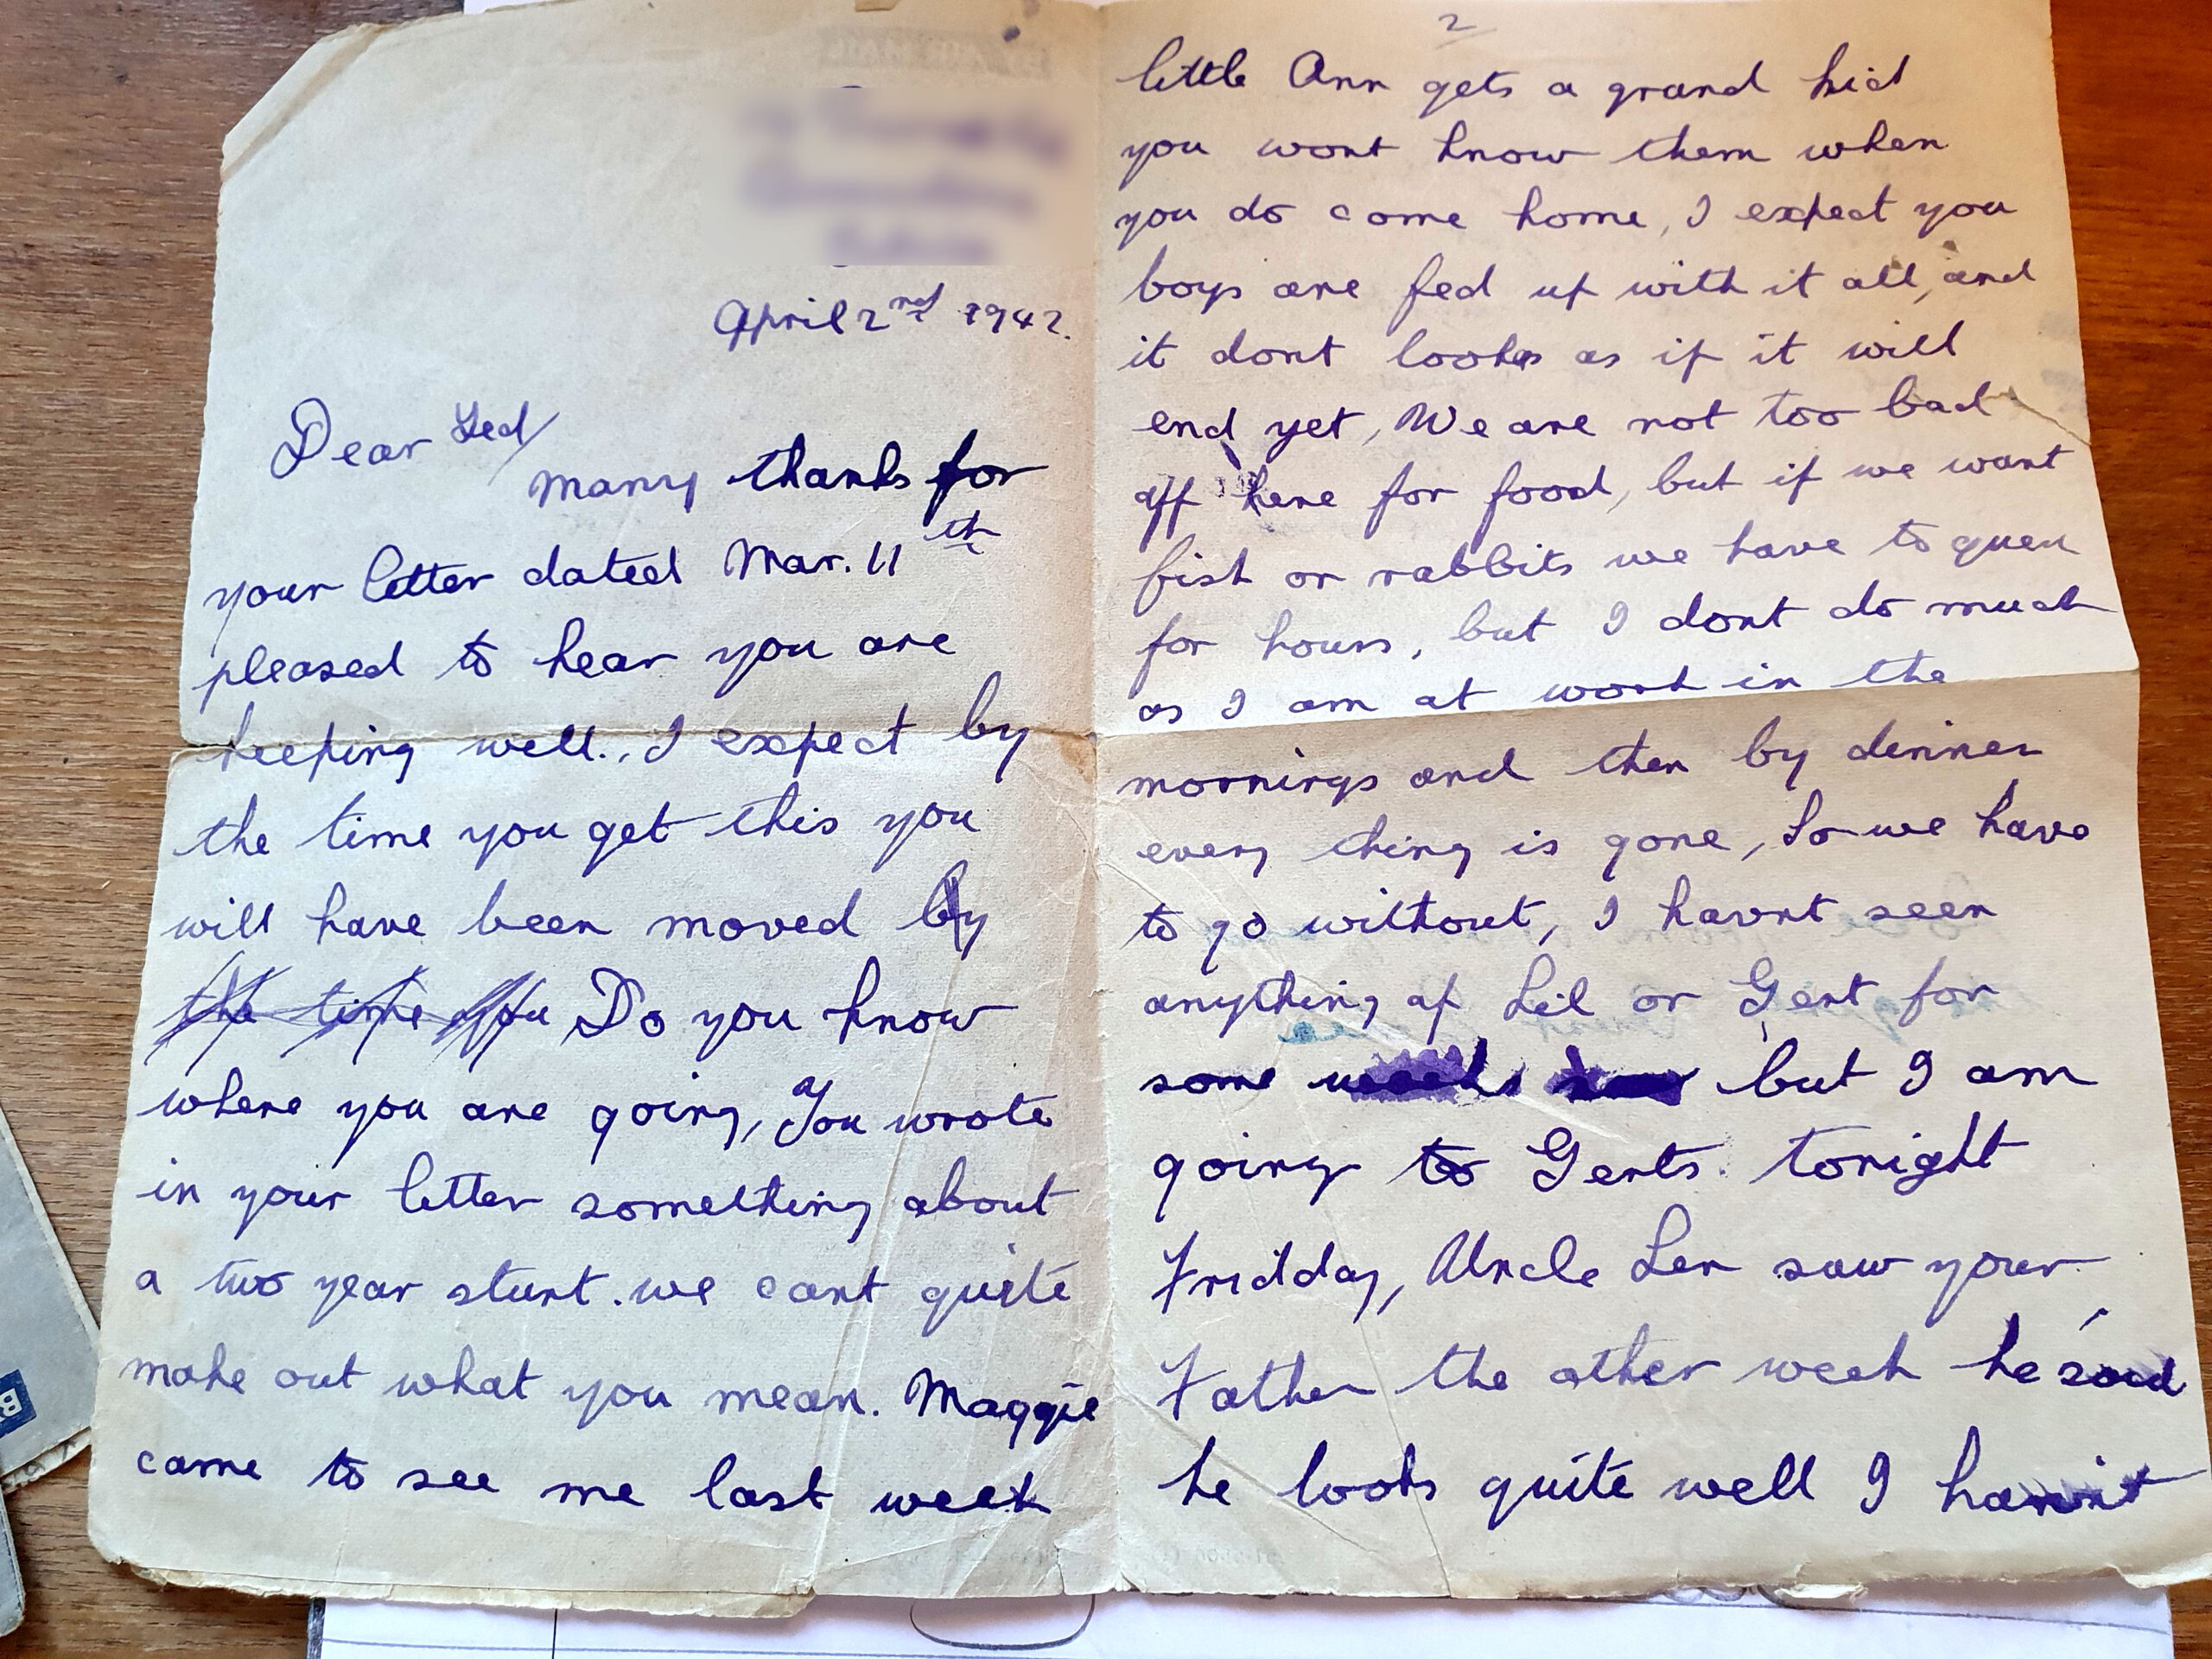 April 2nd 1942.
Dear Ted/
Many thanks for
your letter dated Mar. 11th
pleased to hear you are
keeping well., I expect by
the time you get this you
will have been moved by
the time you Do you know
where you are going, You wrote
in your letter something about
a two year stunt. we cant quite
make out what you mean. Maggie
came to see me last week
2
little Ann gets a grand kid
you wont know them when
you do come home, I expect you
boys are fed up with it all, and
it dont looks as if it will
end yet, We are not too bad
off here for food, but if we want
fish or rabbits we have to queu
for hours, but I dont do much
as I am at work in the
mornings and then by dinner
every thing is gone, So we have
to go without, I havnt seen
anything of Lil or Gert for
some weeks but I am
going to Gerts tonight
Fridday, Uncle Len saw your
Father the other week he said
he looks quite well I havnt